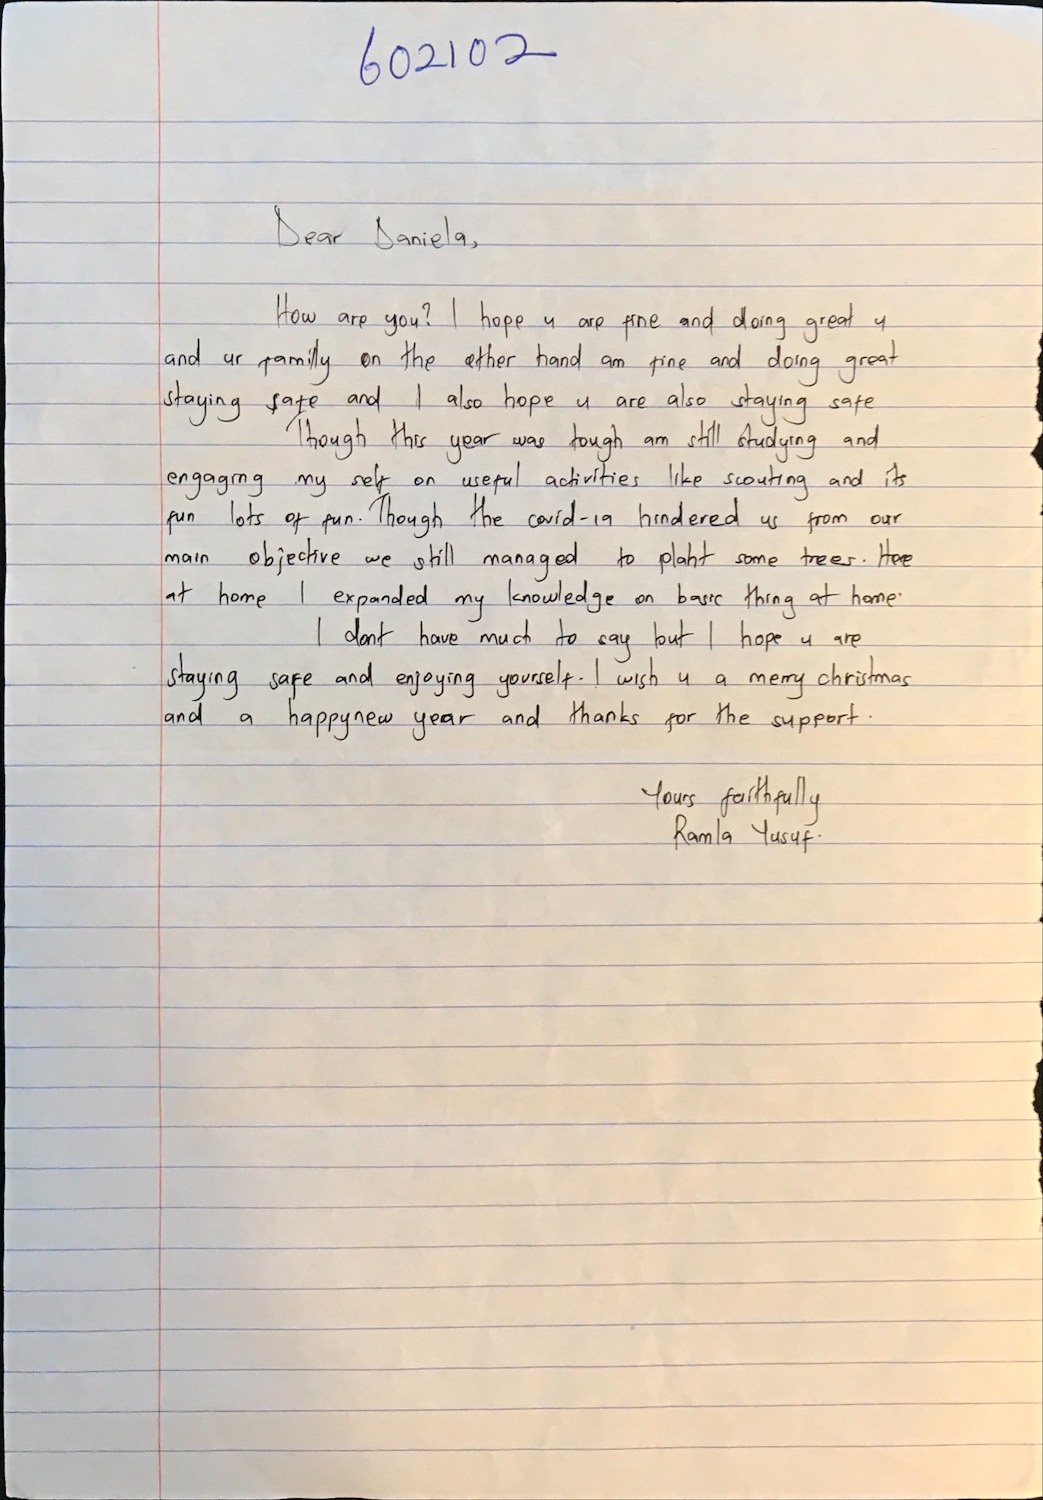 602102
Dear Daniela,
How are you? I hope u are fine and doing great u
and ur familly on the other hand am fine and doing great
staying safe and I also hope u are also staying safe
Though this year was tough am still studying and
engaging my self on useful activities like scouting and its
fun lots of fun. Though the covid-19 hindered us from our
main objective we still managed to plant some trees. Here
at home I expanded my knowledge on basic thing at home.
I dont have much to say but I hope u are
staying safe and enjoying yourself. I wish u a merry christmas
and a happynew year and thanks for the support.
Yours faithfully
Ramla Yusuf.